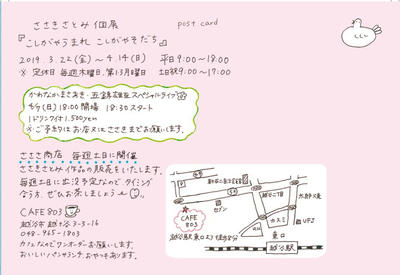 ささきさとみ個展 post card
『こしがやうまれ こしがやそだち』
2019. 3. 22(金)〜4.14(日) 平日9:00〜18:00
※定休日 毎週木曜日.第3月曜日 土日祝9:00〜19:00
かわなかまさあき・五錦雄互スペシャルライブ
4/7(日)18:00開場 18:30スタート
1ドリンク付 1.500yen
※ご予約はお店又はささきまでお願いします。
ささき商店 毎週土日に開催
ささきさとみ作品の販売をいたします。
毎週土日に出没予定なのでタイミング
合う方、ぜひお茶しましょう
CAFE 803
越谷市越ヶ谷3-3-16
048-965-1803
カフェなんでワンオーダーお願いします。
おいしいパンやランチ、おやつもあります。
セブン
CAFE 803
越谷駅東口より徒歩8分
越ヶ谷二丁目
カスミ
au
UFJ
東口
越谷駅